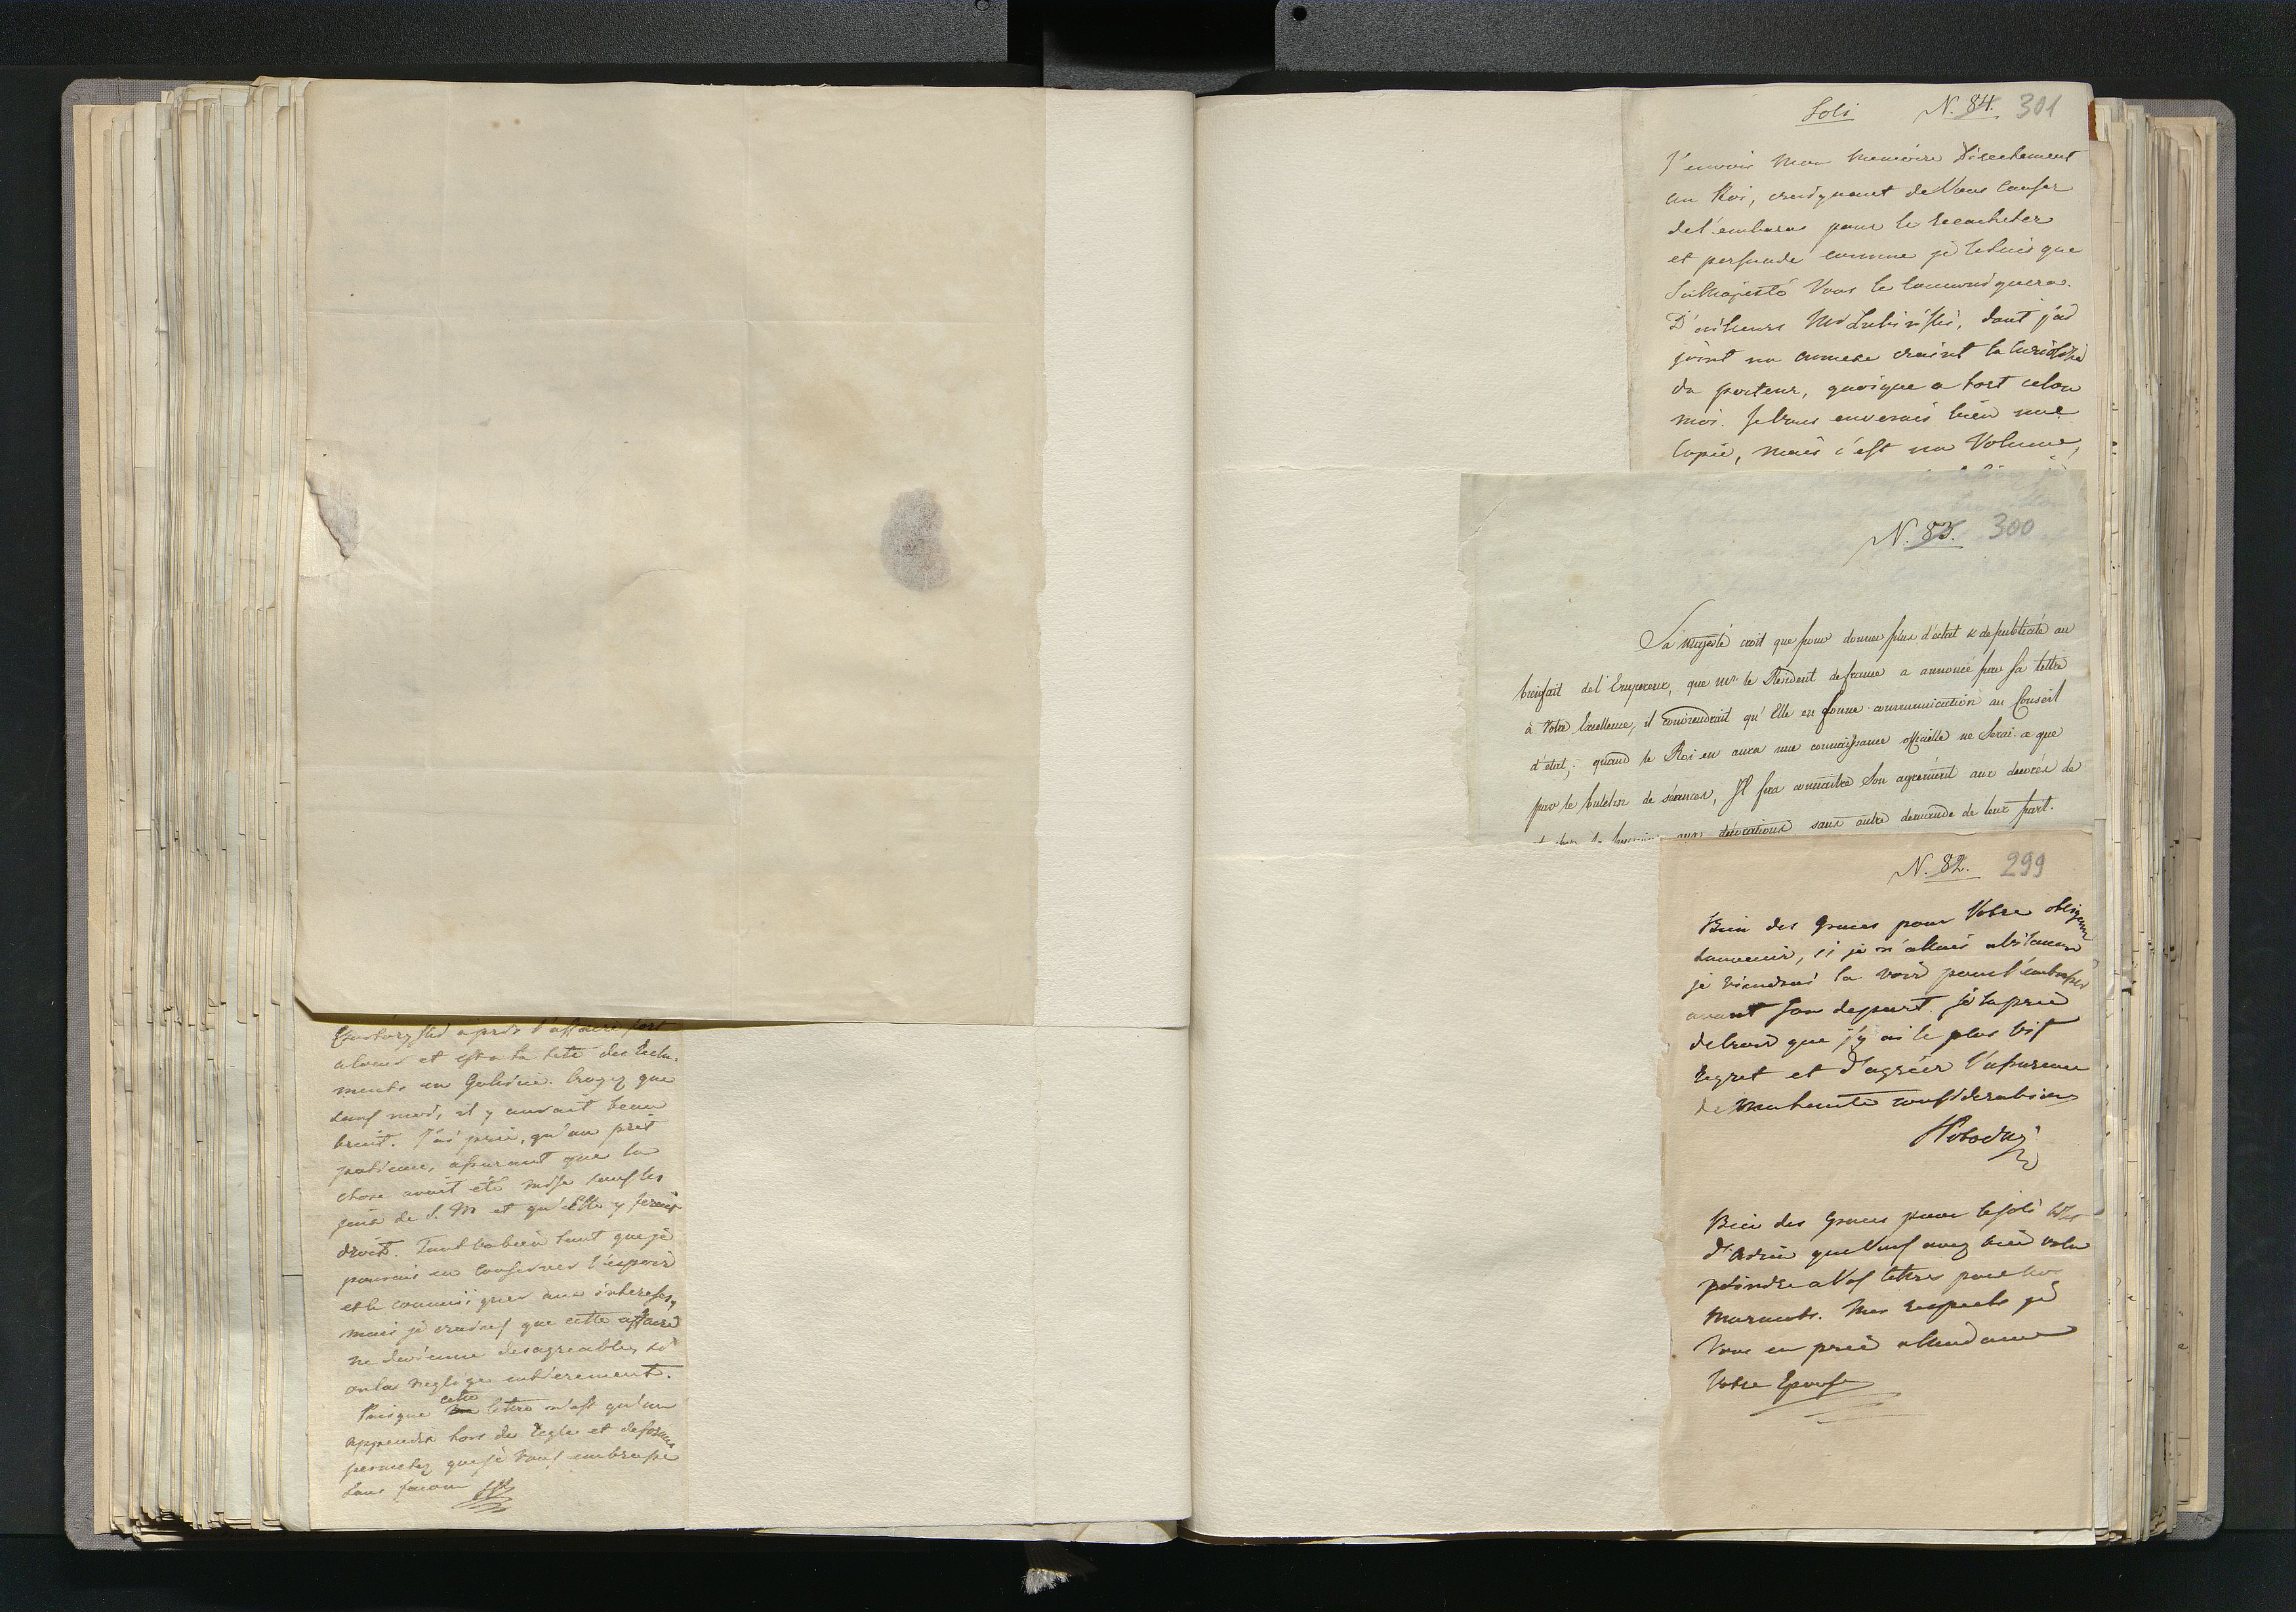 après l'affaire
alours et est a la tete des Recru-
ments en Galicie. Croyez que
sauf moi, il y aurait beau
bruit. J'ai prié, qu'on prit
patience, assurant que la
chose avait été mise sous les
yeux de S. M et qu'Elle y ferait
droit. Tant que je
pourrais en conserver l'espoir
et le comuniquer aux interessés,
mais je crains que cette affaire
ne devienne desagreable, si
on la neglige entierement.
Puisque cette lettre n'est qu'un
appendix hors de Regle et de forme
permetez que je Vous embrasse
sans facon
Soli N. 84. 301
J'envois Mon Memoire Directement
au Roi, craignant de Vous causer
de l'embaras pour le recacheter
et persuadé comme je le suis que
Sa Majesté Vous le comuniquera.
D'ailleurs Mr Lubinski, dont j'ai
joint un annexe craint la curiosité
du porteur, quoique a tort celon
moi. Je Vous enverais bien une
Copie, mais c'est un Volume,
N. 83. 300
Sa Majesté croit que pour donner plus d'éclat & de publicité au
bienfait de l'Empereur, que mr le Résident de france a annoncé par sa lettre
à Votre Excellence, il conviendrait qu'Elle en donne communication au Conseil
d'état; quand le Roi en aura une connaissance officielle ne serai-ce que
par le bulletin de séances, Il fera connaître Son agrément aux décorés de
aux décorations sans autre demande de leur part.
N. 82. 299
Bien des Graces pour Votre obligeant
souvenir, si je n'allais
je viendrai la voir pour l'embrasser
avant son depart. je la prie
de croire que j'y ai le plus vif
Regret et d'agréer l'assurance
de Ma haute consideration
Bien des Graces pour le joli
que Vous avez bien volu
joindre a Vos lettres pour
Mes respects je
Vous en prie a Madame
Votre Epouse